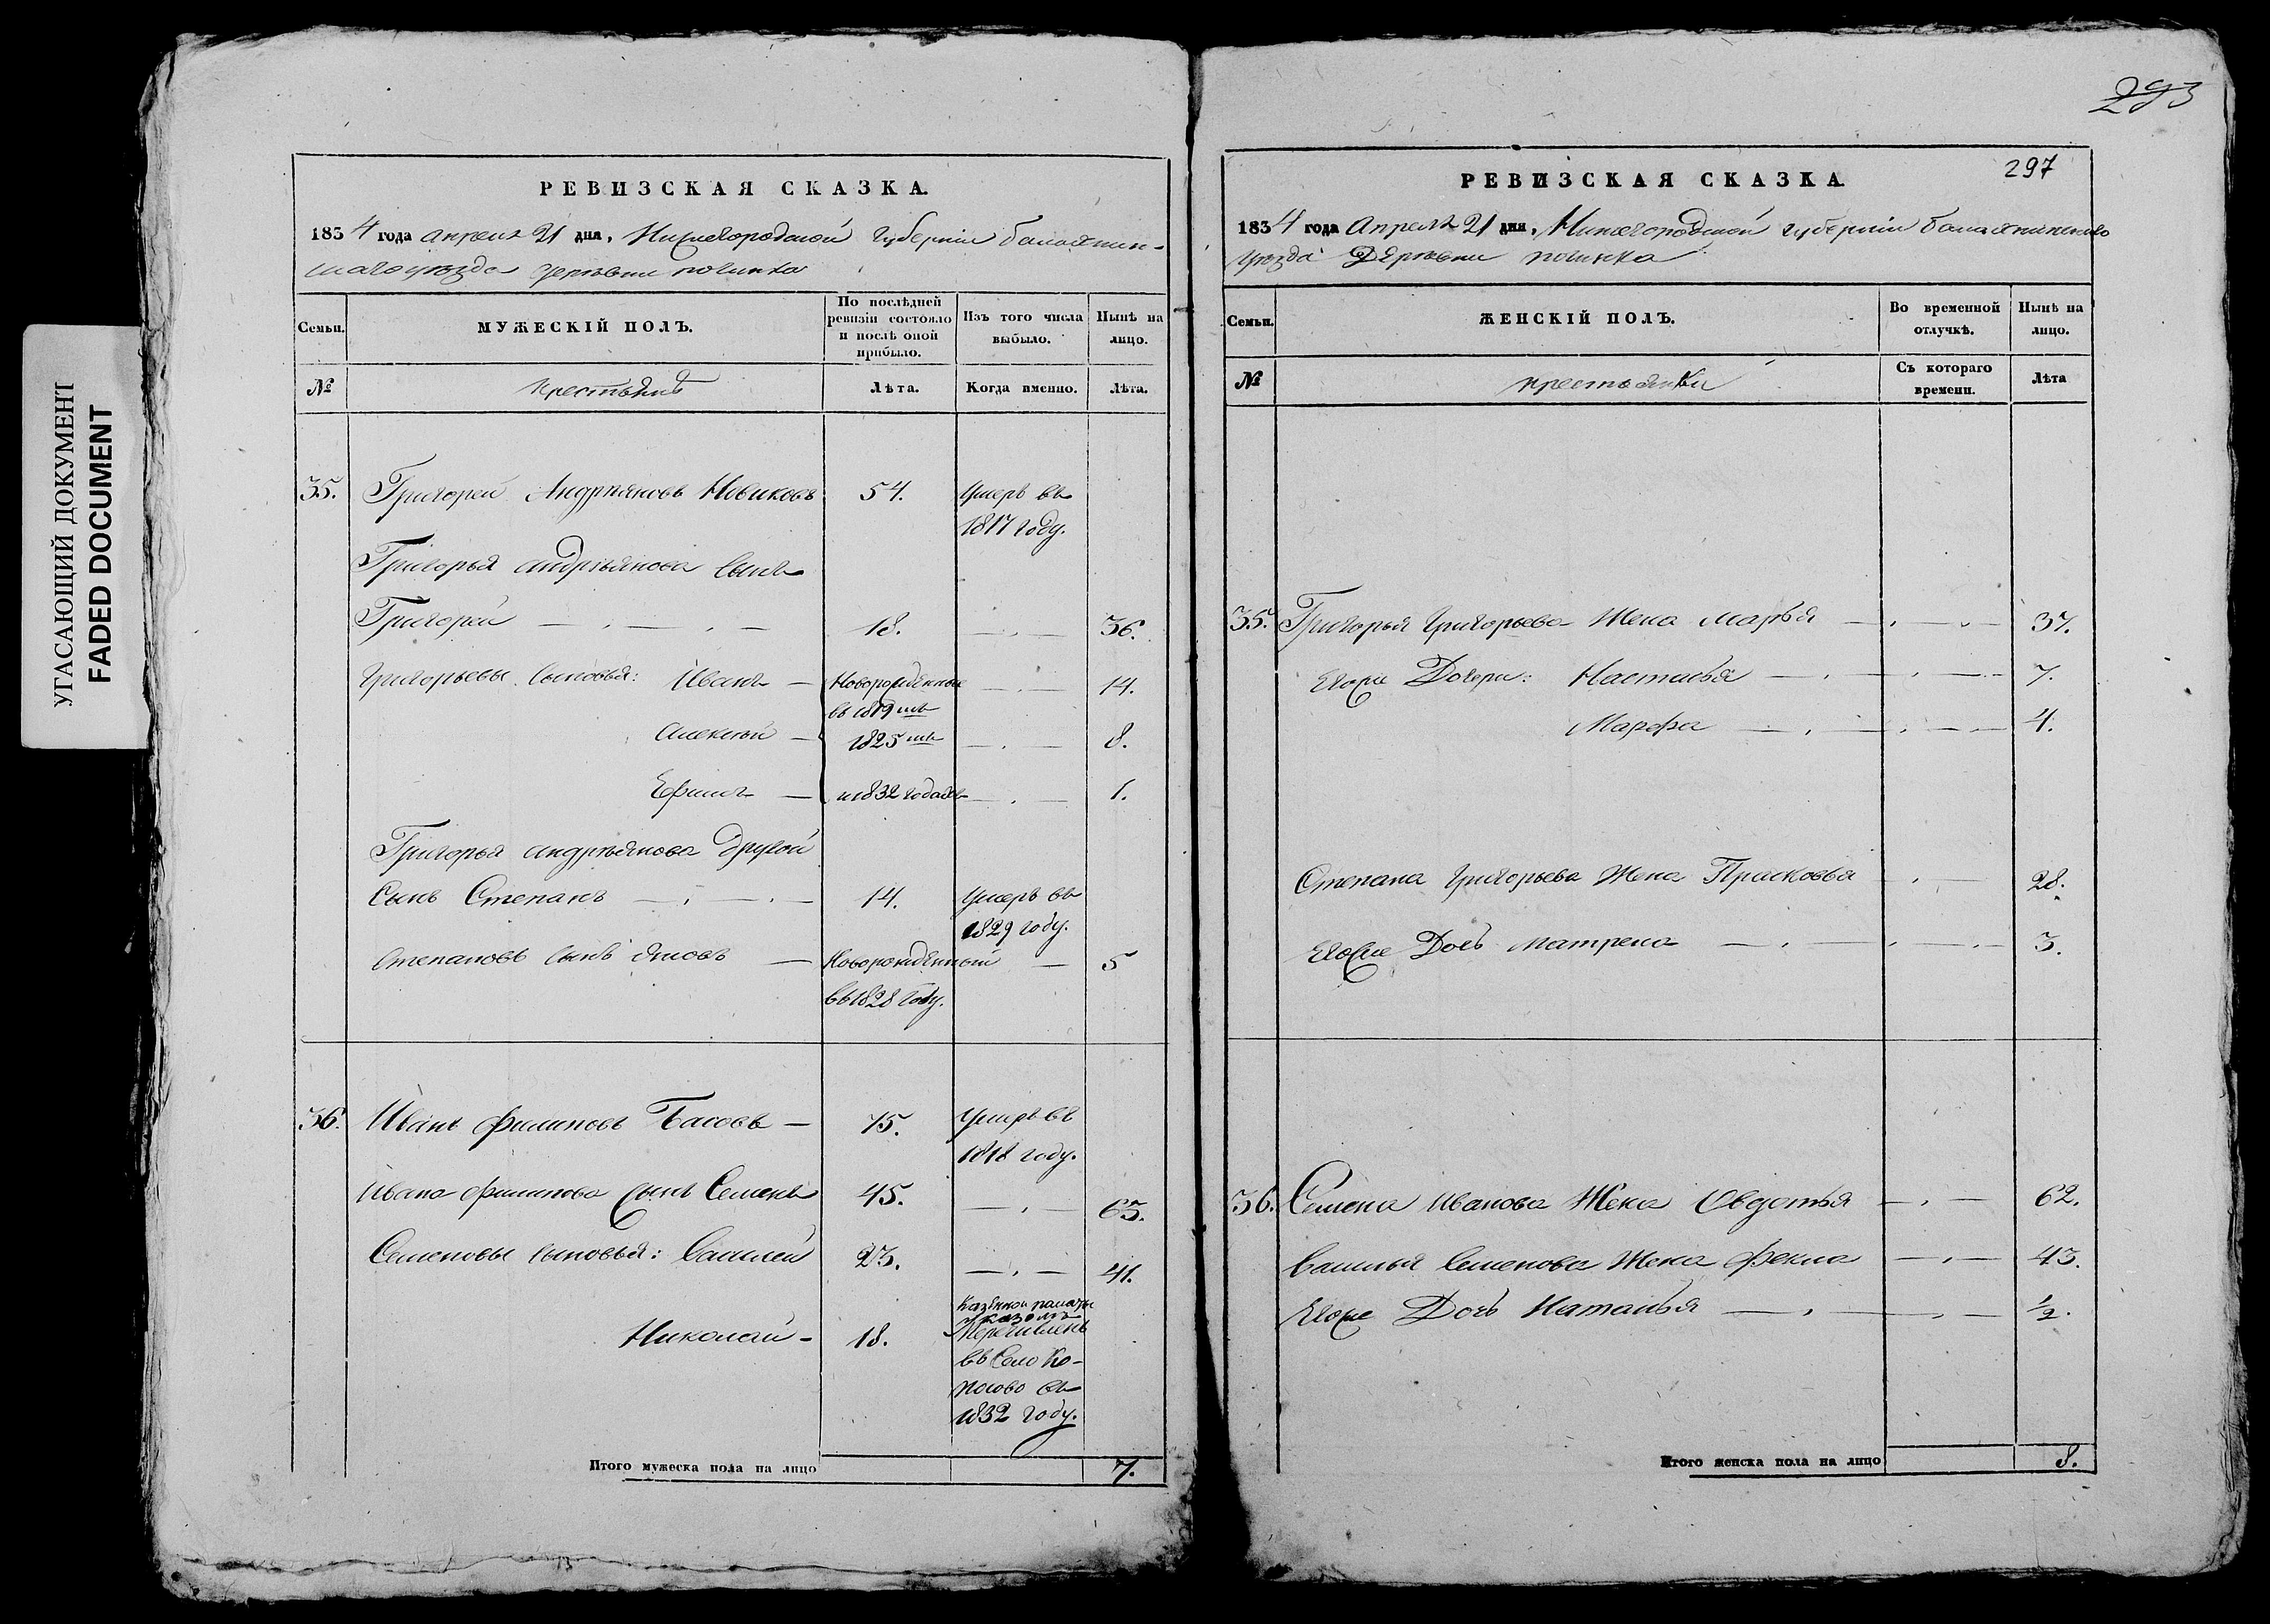 УГАСАЮЩИЙ ДОКУМЕНТ
FADED DOCUMENT
РЕВИЗСКАЯ СКАЗКА.
1834 года апреля 21 дня, Нижегородской губернии балахнин-
скаго уезда деревни починка
Семьи.
МУЖЕСКІЙ ПОЛЪ.
По послѣдней ревизіи состояло и послѣ оной прибыло.
Изъ того числа выбыло.
Нынѣ на лицо.
№
крестьянъ
Лѣта.
Когда именно.
Лѣта.
35. Григорей Андреяновъ Новиковъ 54. Умеръ въ
1817 году.
Григорья андреянова сынъ
Григорей — . — . — 18. — . — 36.
Григорьевы сыновья: Иванъ — Новорожденные — . — 14.
въ 1819мъ
Алексѣй — 1825мъ — . — 8.
Ефимъ — и 1832 годахъ — . — 1.
Григорья андреянова другой
сынъ Степанъ — . — . — 14. Умеръ въ
1829 году.
Степановъ сынъ Яковъ — Новорожденный — 5
въ 1828 году.
36. Иванъ филиповъ Басовъ — 75. Умеръ въ
1818 году.
Ивана филипова сынъ Семенъ 45. — . — 63.
Семеновы сыновья: Василей 23. — . — 41.
Николай - 18. Казенной палаты
указомъ
Перечисленъ
въ Село Ко-
посово въ
1832 году.
Итого мужеска пола на лицо 7.
293
297
РЕВИЗСКАЯ СКАЗКА
1834 года Апреля 21 дня, Нижегородской губерніи балахнинскаго
уезда Деревни починка
Семьи.
ЖЕНСКІЙ ПОЛЪ.
Во временной отлучкѣ.
Нынѣ на лицо.
№
крестьянки
Съ котораго времени.
Лѣта
35. Григорья Григорьева Жена Марья — . — . — 37.
Егоже Дочери: Настасья — . — . — . — 7.
Марфа — . — . — . — 4.
Степана Григорьева Жена Прасковья . — 28.
Егоже Дочь Матрена — . — . — . — 3.
36. Семена Иванова Жена Овдотья — . — 62.
Василья Семенова Жена Фекла — . — 43.
Егоже Дочь Наталья — . — . — 1/2.
Итого женска пола на лицо 8.